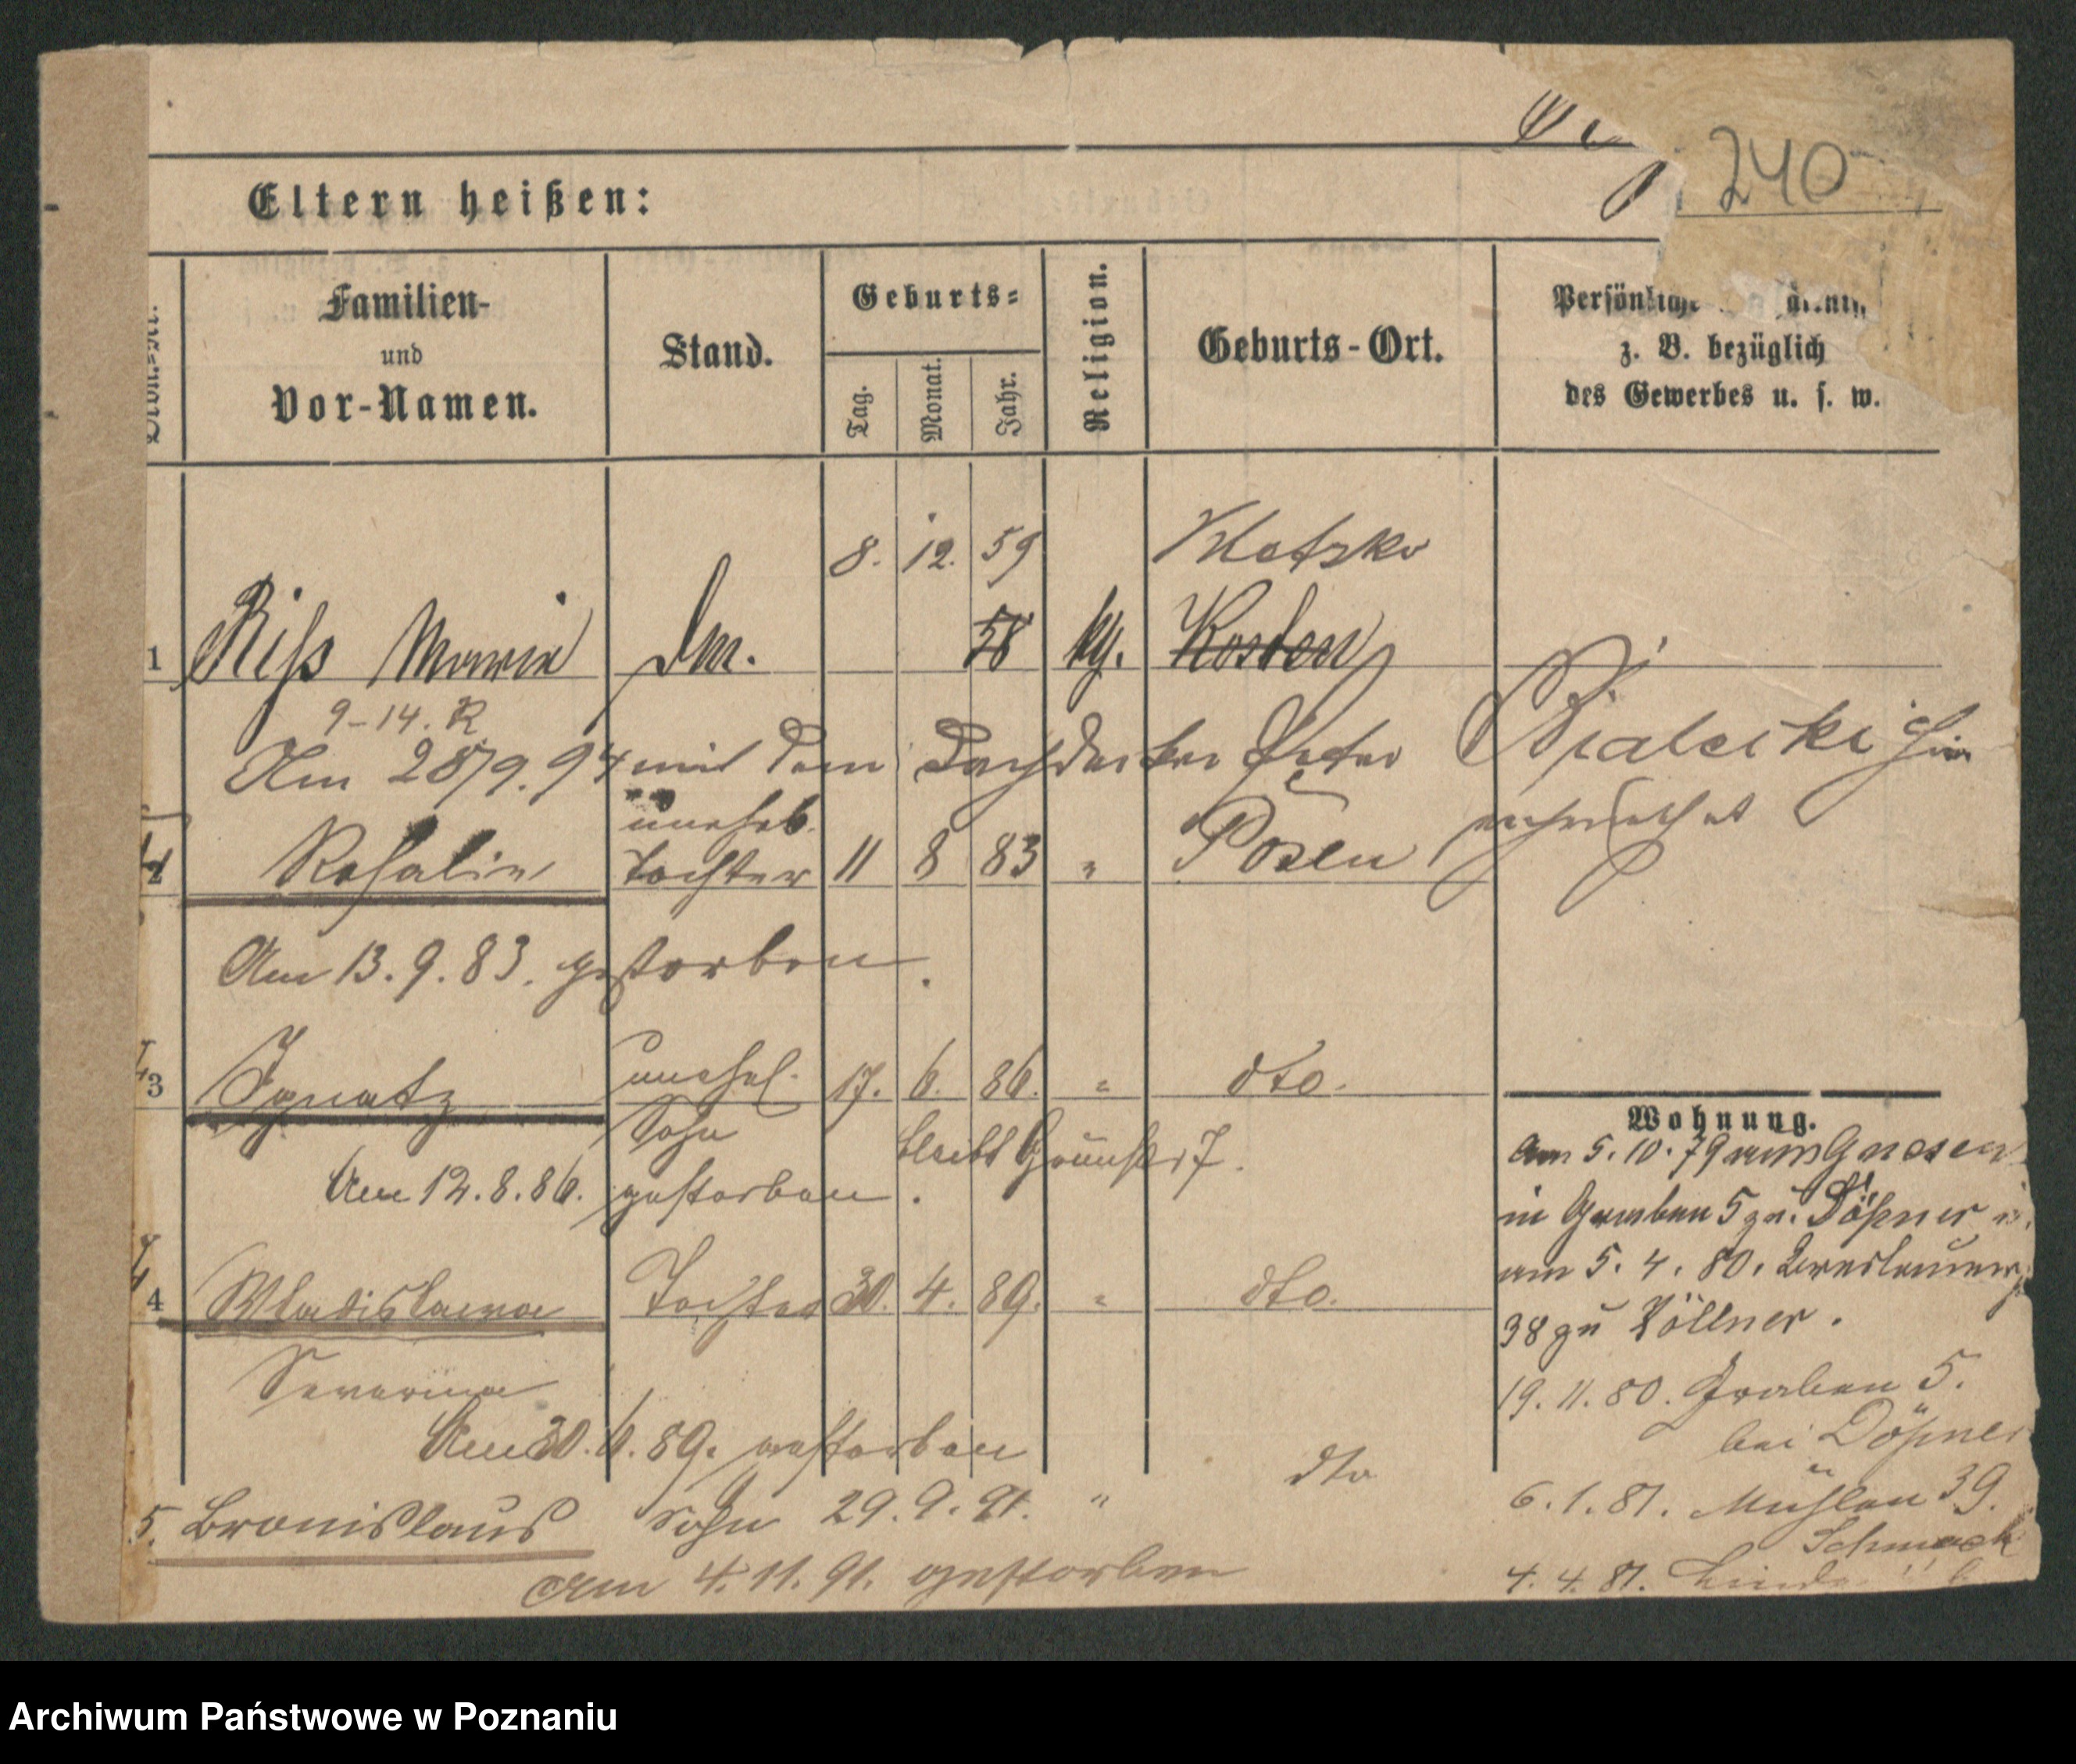 240
Eltern heißen:
Familien-
und
Vor-Namen.
Stand.
Geburts-
Tag.
Monat.
Jahr.
Religion.
Geburts-Ort.
Persönliche
z. B. bezüglich
des Gewerbes u. s. w.
8. 12. 59 Kletzko
1 Riss Maria Dm. 58 kg. Kosten
9-14. R
Am 28/9. 94 mit dem Dachdecker Peter Bialecki hier
verheirathet
unehel.
2 Rosalie Tochter 11 8 83 " Posen
Am 13. 9. 83. gestorben.
3 Ignatz unehel. 17. 6. 86. " dto.
Sohn
bleibt Grünstr 7.
Am 12. 8. 86. gestorben.
4 Wladislawa Tochter 30. 4. 89. " dto.
Severina
Am 30. 6. 89. gestorben
5. Bronislaus Sohn 29. 9. 91. " dto
Am 4. 11. 91. gestorben
Wohnung.
Am 5. 10. 79 von Gnesen
in Graben 5 zu Döpner
am 5. 4. 80. Breslauer
38 zu Zöllner.
19. 11. 80. Graben 5.
bei Döpner
6. 1. 81. Mühlen 39.
Schmack
4. 4. 81.
Archiwum Państwowe w Poznaniu